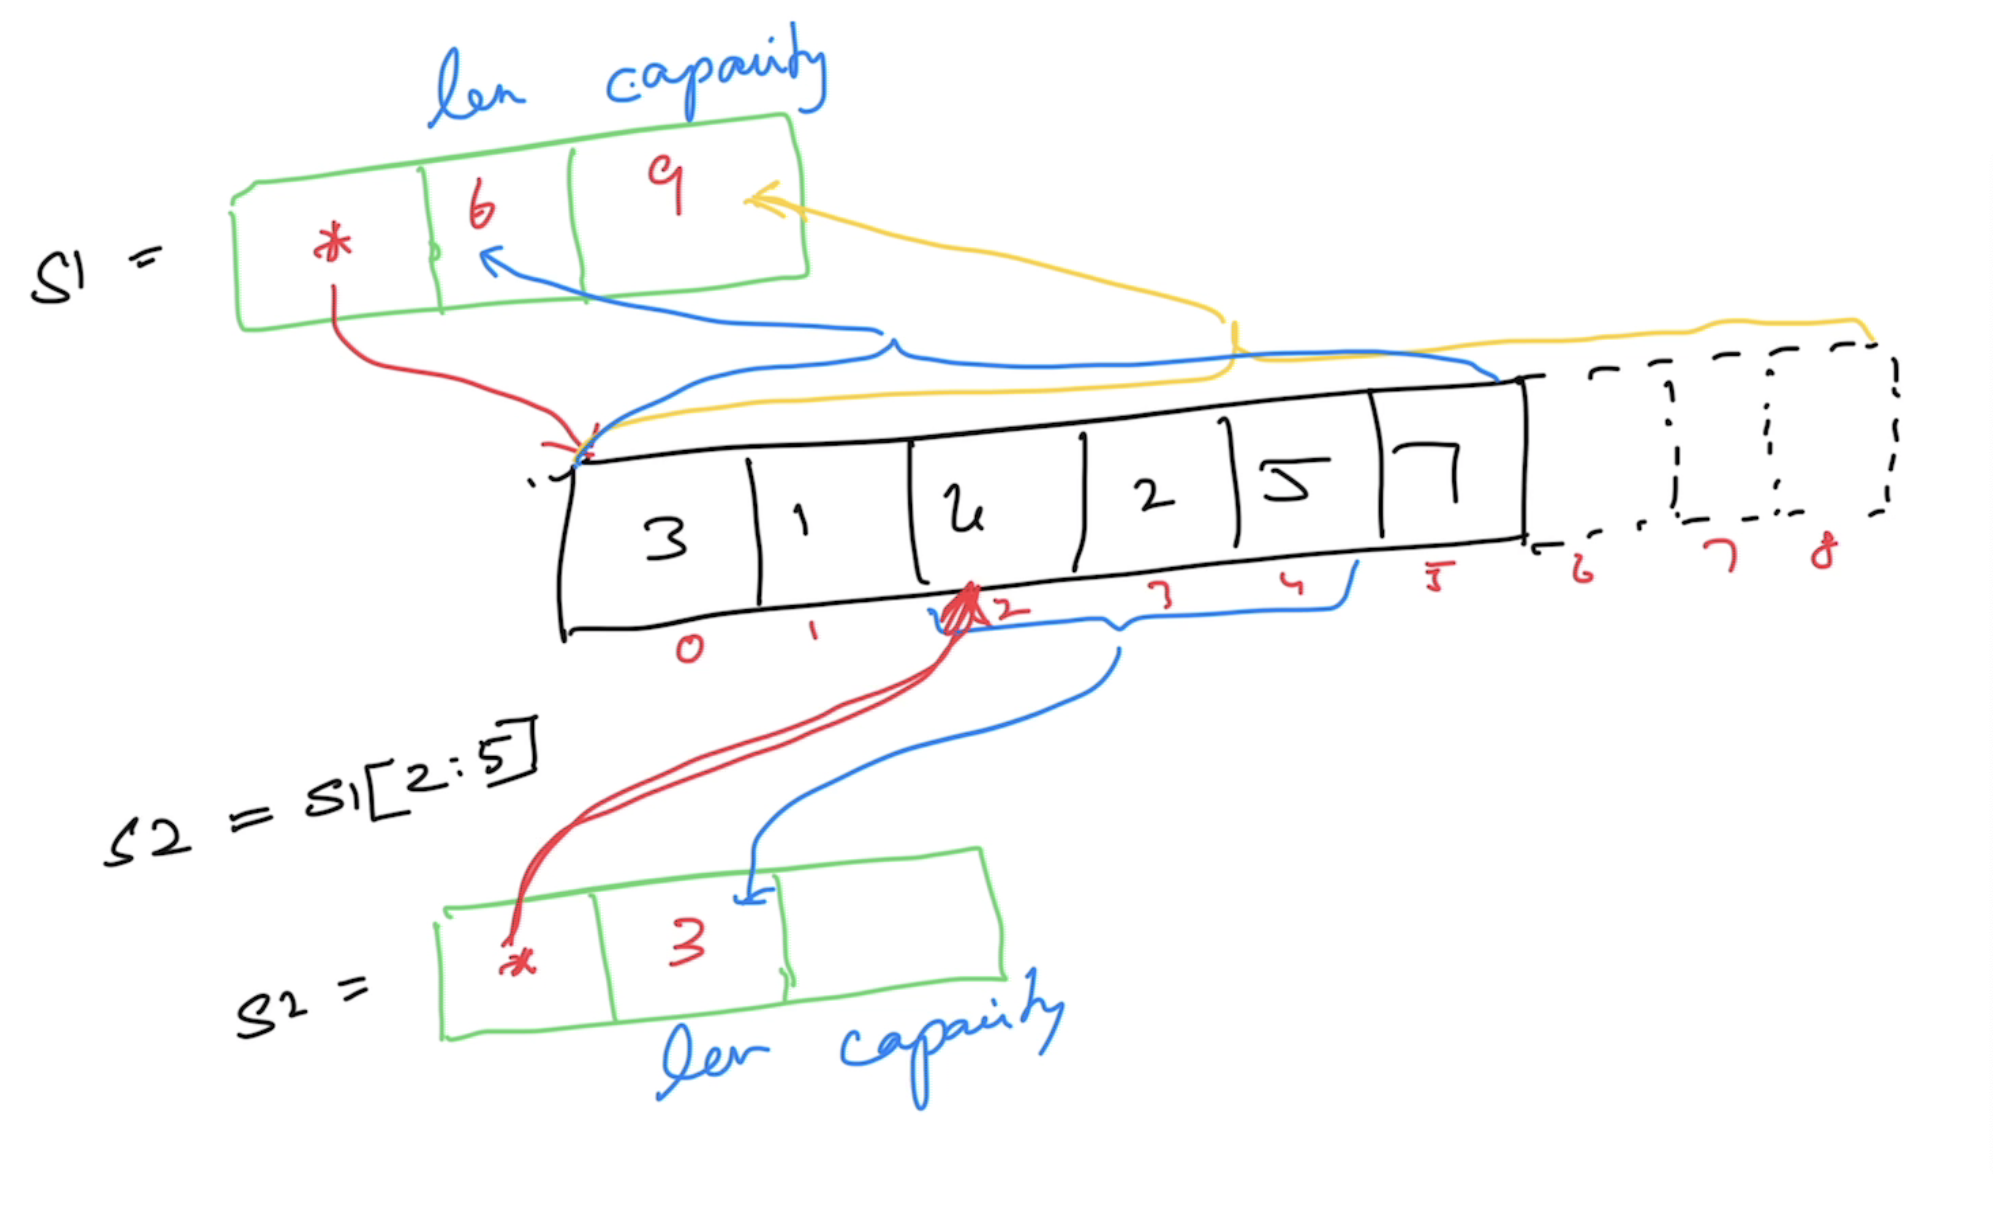 len capacity
S1 = * 6 9
3 1 4 2 5 7
0 1 2 3 4 5 6 7 8
S2 = S1[2:5]
S2 = * 3
len capacity